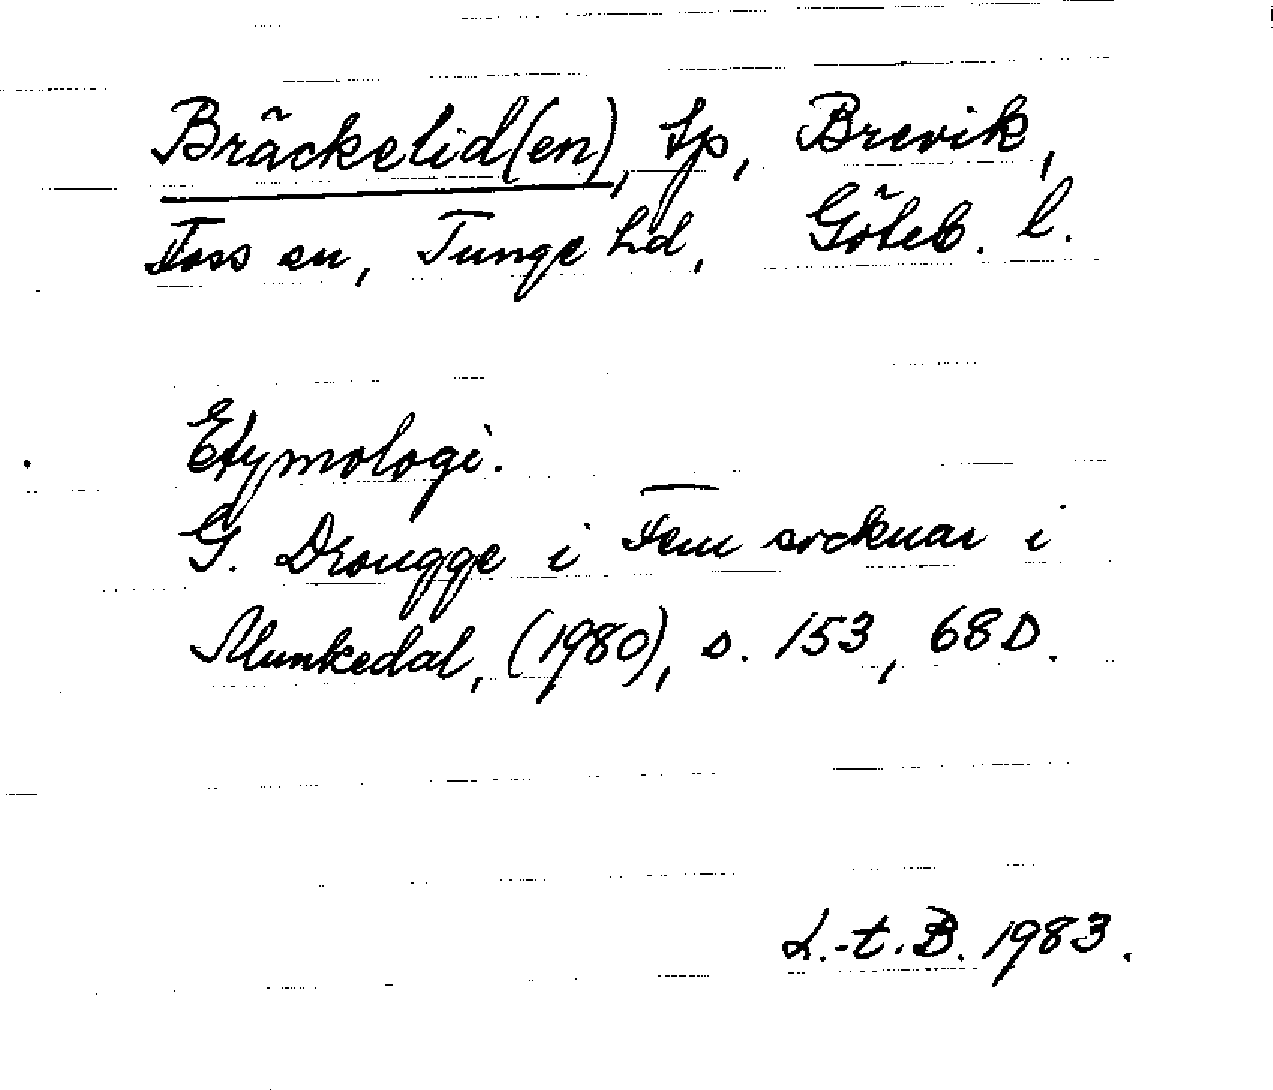 Bräckelid(en), tp, Brevik,
Foss sn, Tunge hd, Göteb. l.
Etymologi.
G. Drougge i Fem socknar i
Munkedal, (1980), s. 153, 68D.
L.-t.B. 1983.